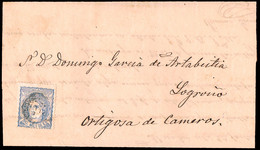 Sr. D. Domingo Garcia de Artabeitia
Logroño
Ortigosa de Cameros.